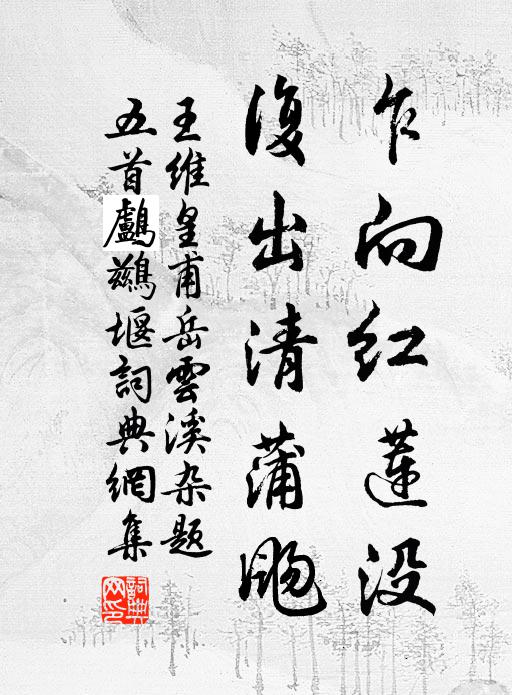 乍向紅蓮没
復出清蒲颺
王維皇甫岳雲溪杂题
五首鸕鷀堰詞典網集
詞典網印